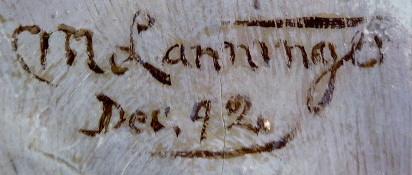 M Lanning
Dec. 92.